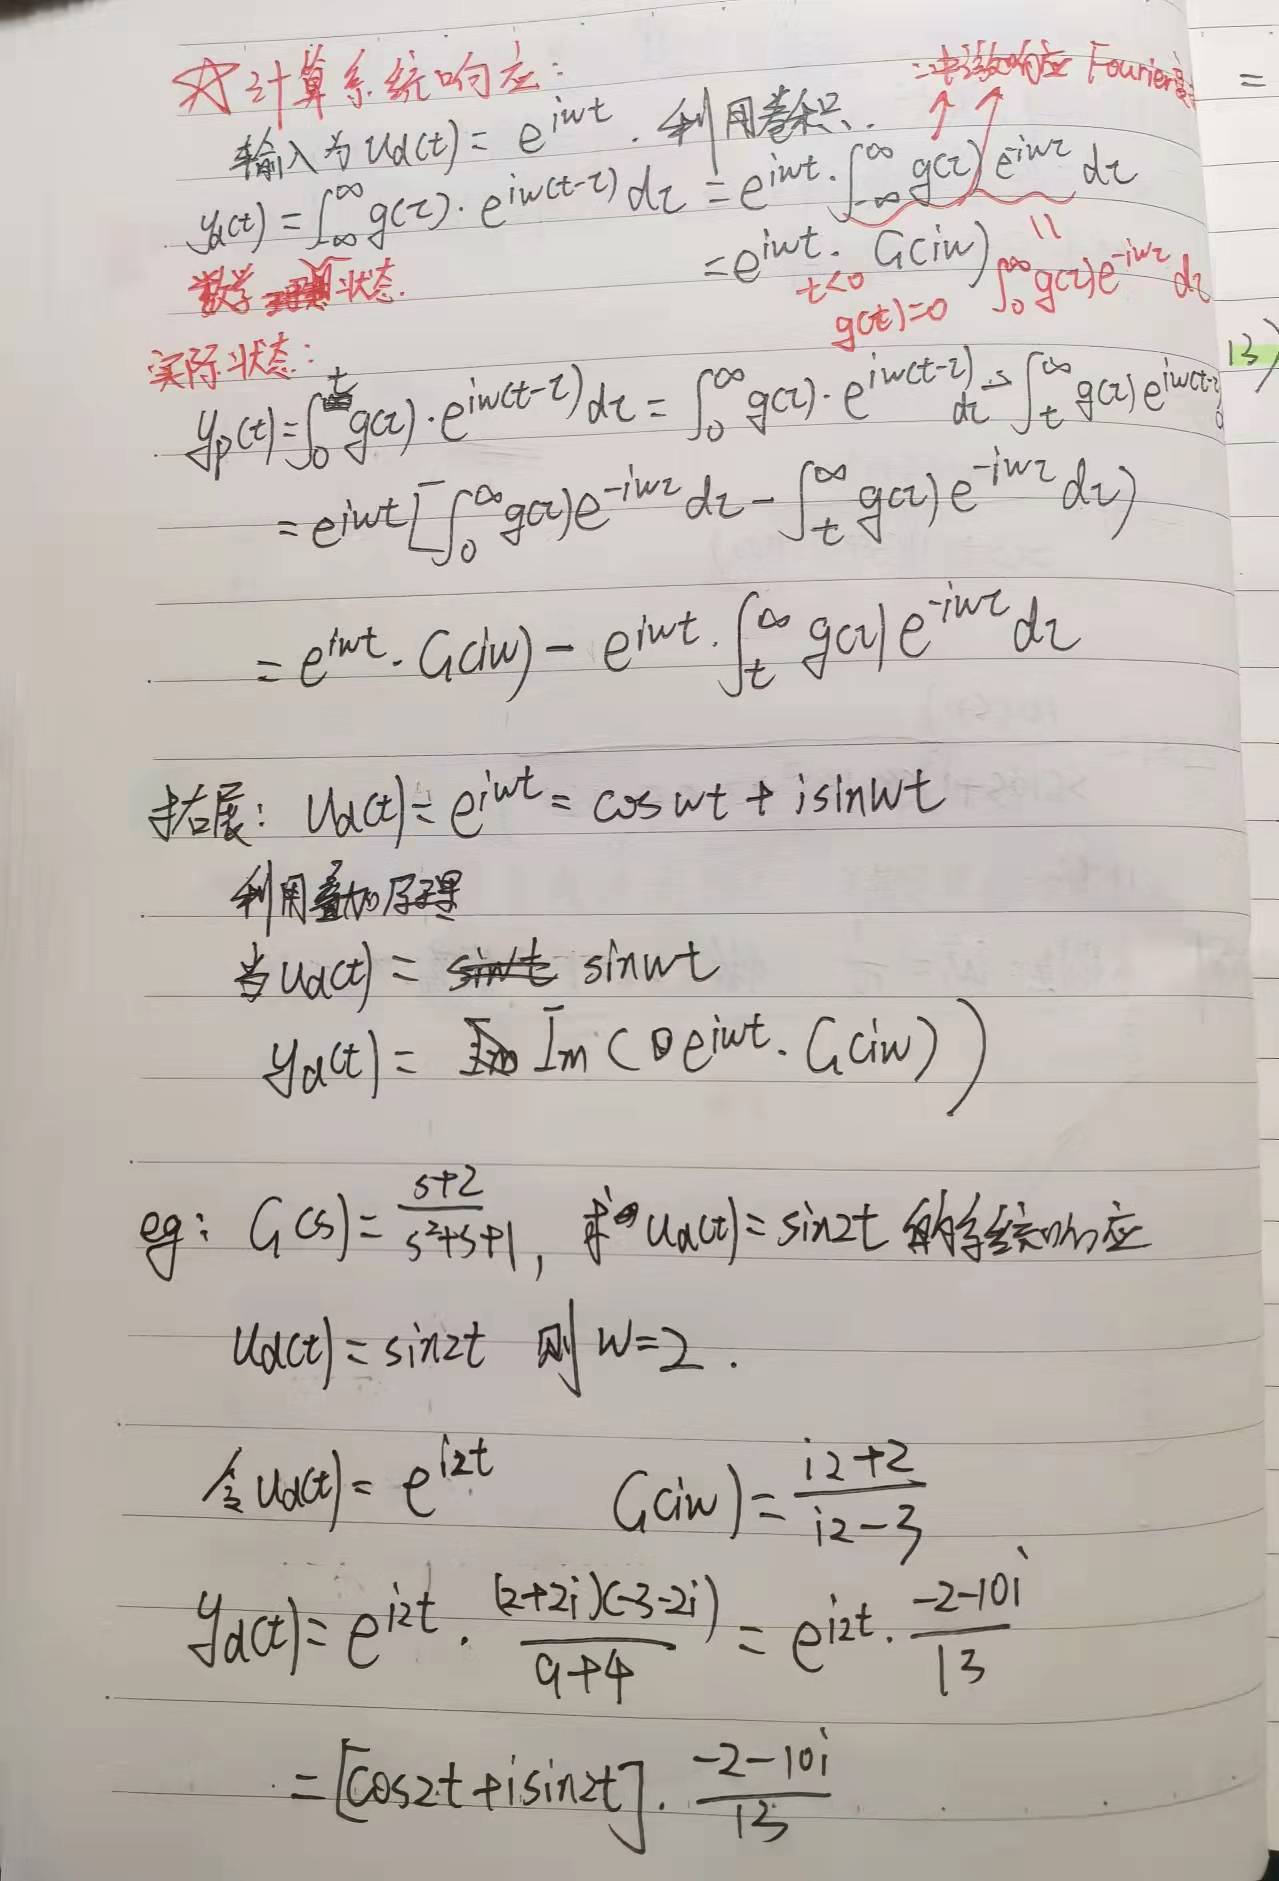 ☆计算系统响应：
∴冲激响应 Fourier变
输入为 u_d(t) = e^{iwt}. 利用卷积.
y_d(t) = ∫_{-∞}^{∞} g(τ)·e^{iw(t-τ)} dτ = e^{iwt}·∫_{-∞}^{∞} g(τ) e^{-iwτ} dτ
= e^{iwt}· G(iw)
||
∫_0^∞ g(τ)e^{-iwτ} dτ
t<0
g(t)=0
数学状态.
实际状态：
y_p(t) = ∫_0^t g(τ)·e^{iw(t-τ)} dτ = ∫_0^∞ g(τ)·e^{iw(t-τ)} dτ - ∫_t^∞ g(τ) e^{iw(t-τ)}
13)
= e^{iwt} [∫_0^∞ g(τ)e^{-iwτ} dτ - ∫_t^∞ g(τ) e^{-iwτ} dτ)
= e^{iwt}· G(iw) - e^{iwt}·∫_t^∞ g(τ) e^{-iwτ} dτ
拓展： u_d(t) = e^{iwt} = cos wt + i sin wt
利用叠加原理
当 u_d(t) = sin wt
y_d(t) = Im ( e^{iwt}· G(iw) )
eg: G(s) = \frac{s+2}{s^2+s+1}, 求 u_d(t) = sin2t 的系统响应
u_d(t) = sin2t 则 w=2.
令 u_d(t) = e^{i2t} G(iw) = \frac{i2+2}{i2-3}
y_d(t) = e^{i2t}· \frac{(2+2i)(-3-2i)}{9+4} = e^{i2t}· \frac{-2-10i}{13}
= [cos2t + i sin2t]· \frac{-2-10i}{13}
=